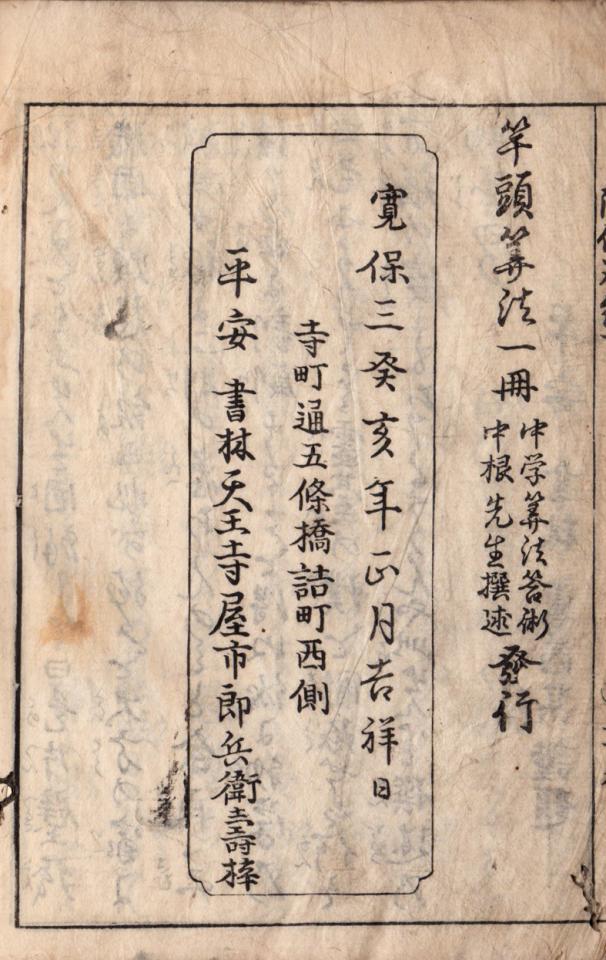 竿頭筭法一冊
中学筭法答術
中根先生撰述
發行
寛保三癸亥年正月吉祥日
寺町通五條橋詰町西側
平安 書林天王寺屋市郎兵衛壽梓